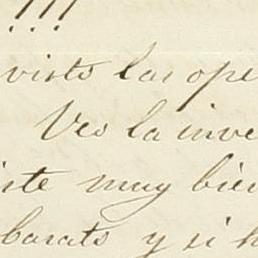 !!!
visto las ope
Veo la inve
iste muy bien
barato y si h